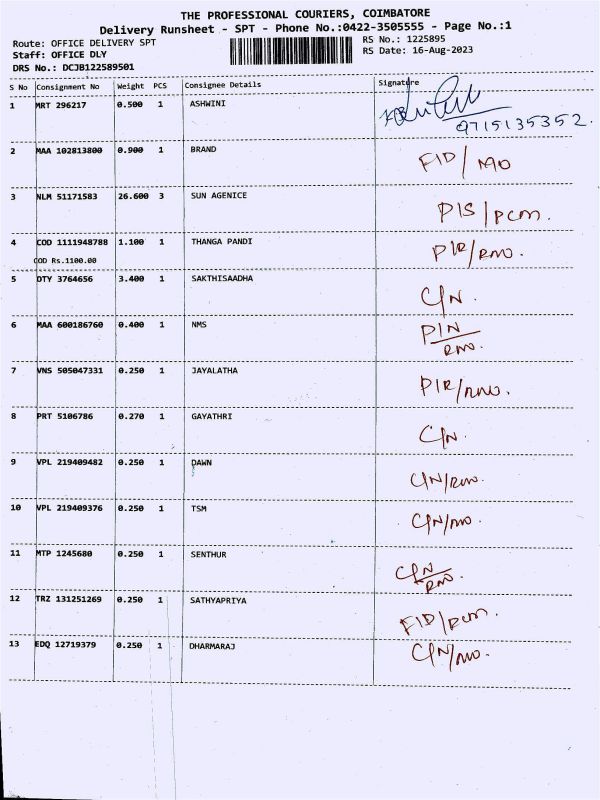 THE PROFESSIONAL COURIERS, COIMBATORE
Delivery Runsheet - SPT - Phone No.:0422-3505555 - Page No.:1
Route: OFFICE DELIVERY SPT RS No.: 1225895
Staff: OFFICE DLY RS Date: 16-Aug-2023
DRS No.: DCJB122589501
S No Consignment No Weight PCS Consignee Details Signature
1 MRT 296217 0.500 1 ASHWINI
9715135352.
2 MAA 102813800 0.900 1 BRAND FID/
3 NLM 51171583 26.600 3 SUN AGENICE PIS/pcm.
4 COD 1111948788 1.100 1 THANGA PANDI PIR/RMO.
COD Rs.1100.00
5 DTY 3764656 3.400 1 SAKTHISAADHA C/N.
6 MAA 600186760 0.400 1 NMS PIN
RMO.
7 VNS 505047331 0.250 1 JAYALATHA PIR/RMO.
8 PRT 5106786 0.270 1 GAYATHRI C/N.
9 VPL 219409482 0.250 1 DAWN C/N/
10 VPL 219409376 0.250 1 TSM C/N/MO.
11 MTP 1245680 0.250 1 SENTHUR C/N
RMO.
12 TRZ 131251269 0.250 1 SATHYAPRIYA FID/pcm.
13 EDQ 12719379 0.250 1 DHARMARAJ C/N/MO.